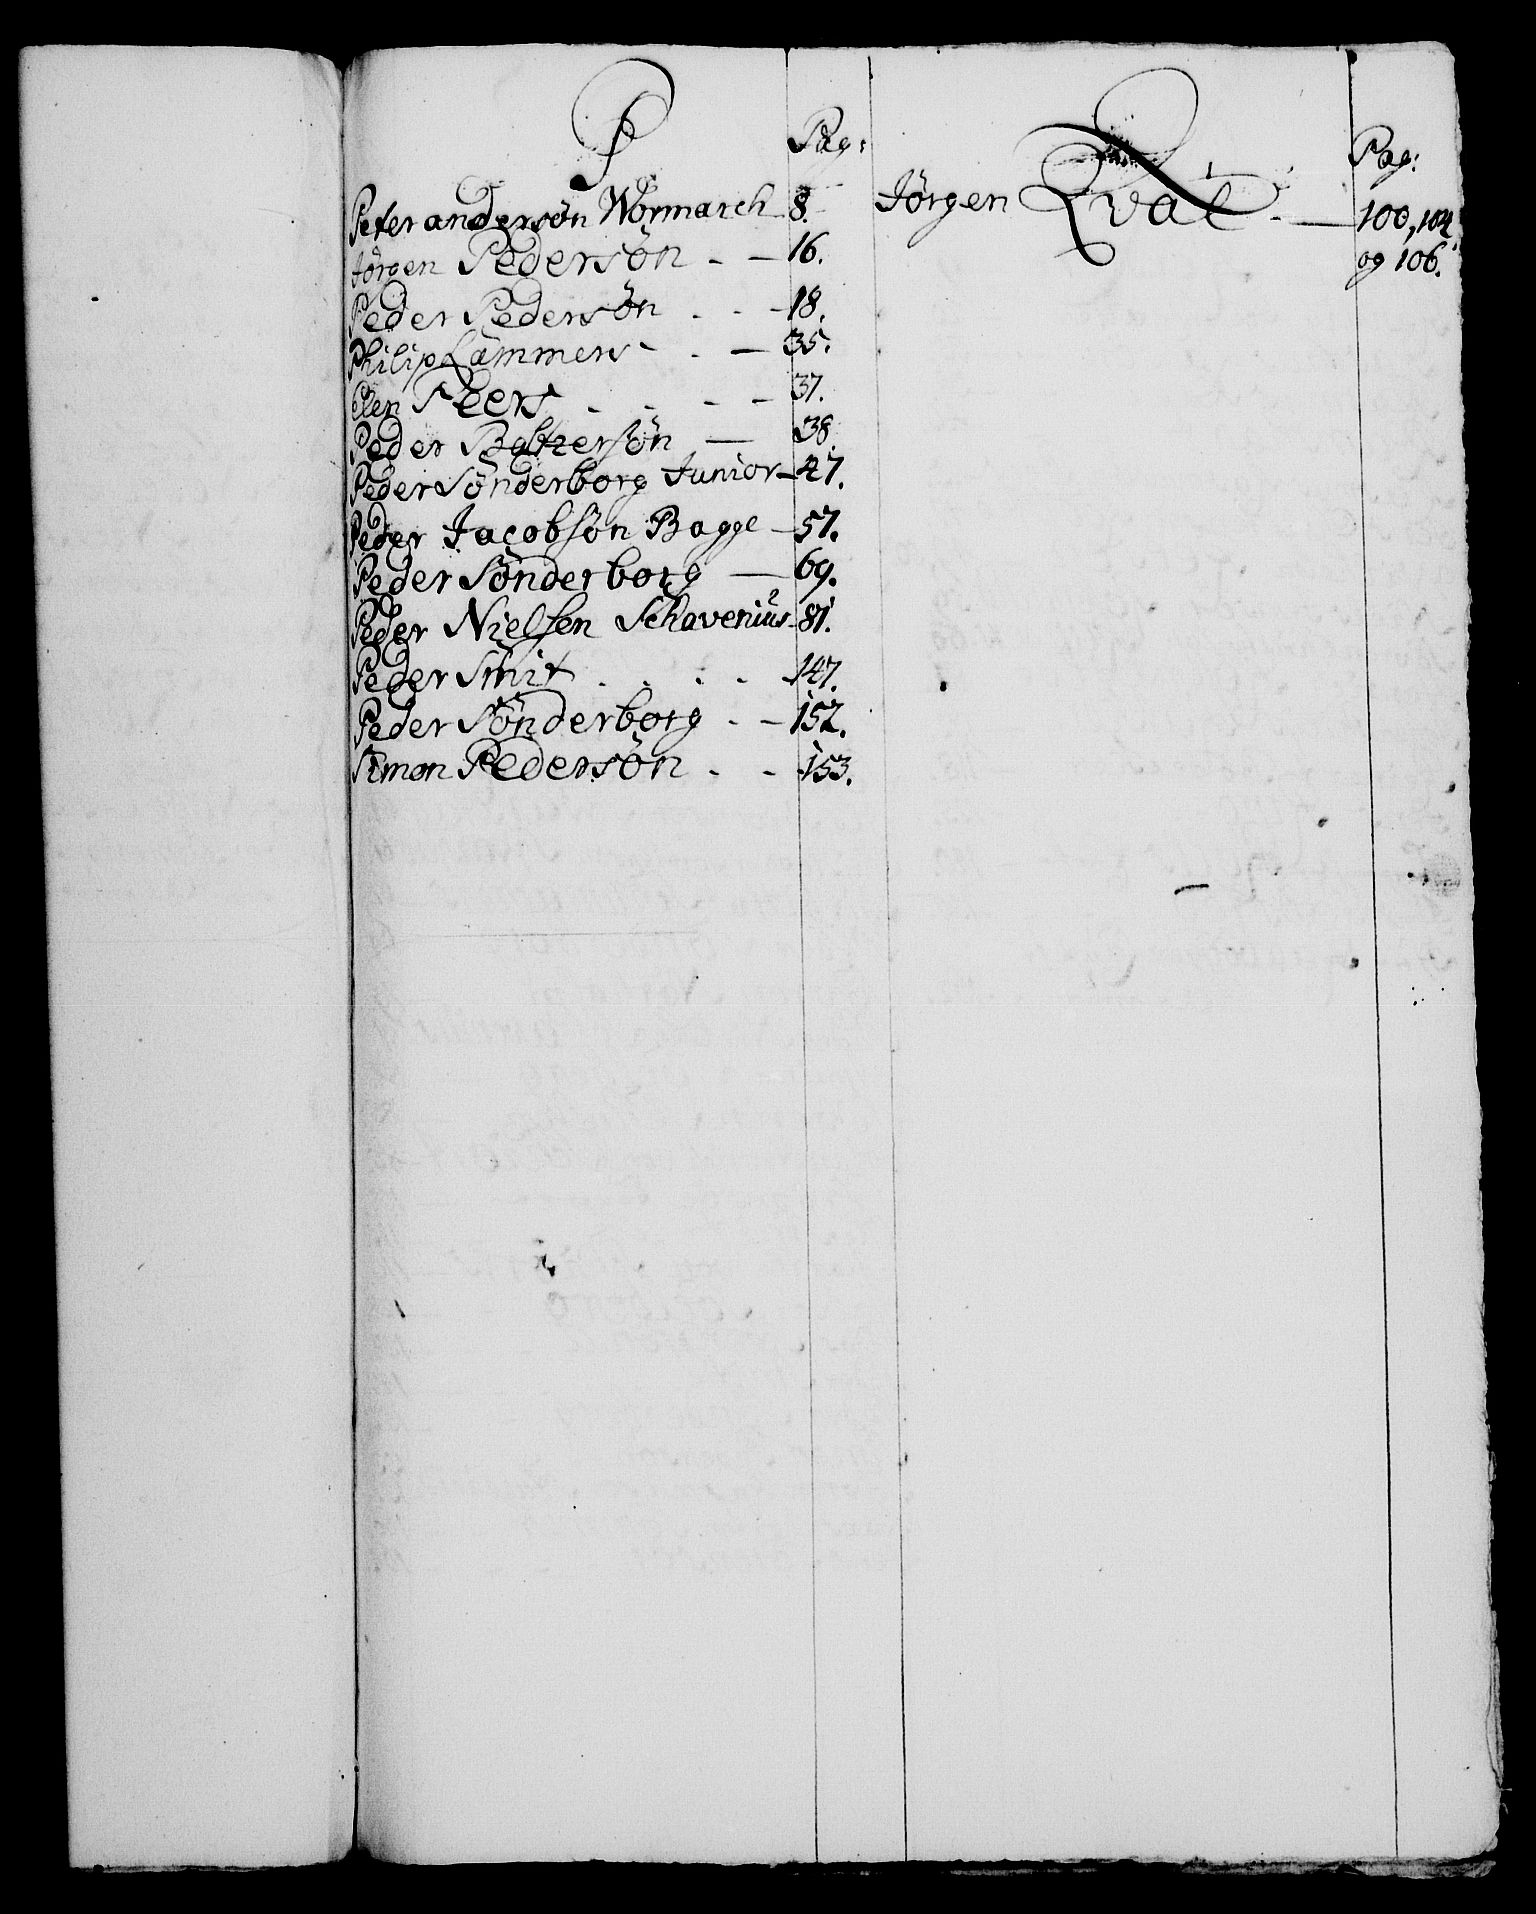 P
Pag:
Peter andersøn Wormarch 8.
Jörgen Pedersøn - - 16.
Peder Pedersøn - - - 18.
Philip Lämmers - - - 35.
Elen Peers - - - - 37.
Peder Baltzersøn - 38.
Peder Sønderborg Junior - 47.
Peder Jacobsøn Bagge - 57.
Peder Sønderborg - 69.
Peder Nielsen Schavenius - 81.
Peder Smit - - - - 147.
Peder Sønderborg - - 152.
Simon Pedersøn - - 153.
Q
Pag:
Jörgen Qval - 100, 104
og 106.